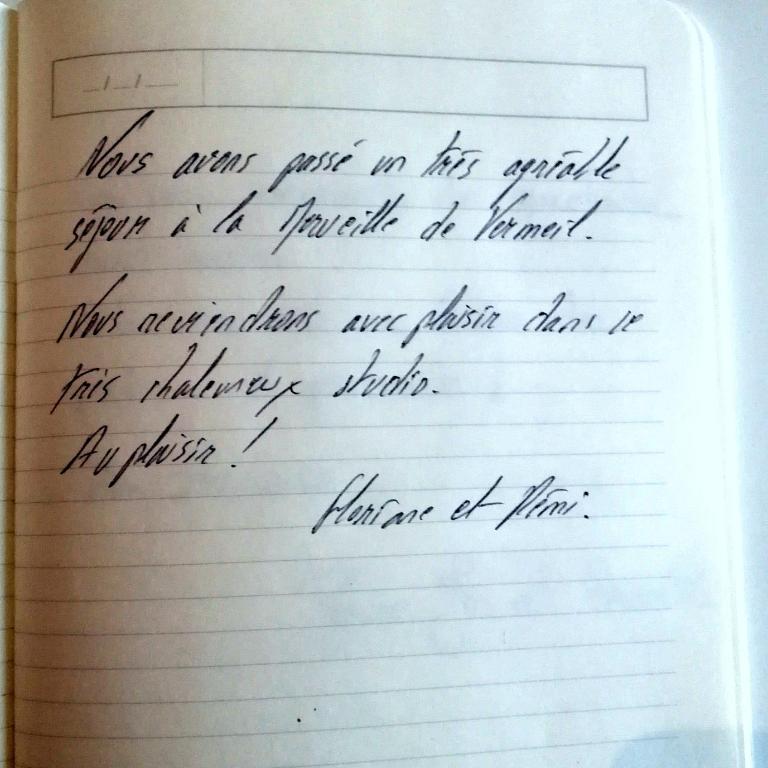 _/_/__
Nous avons passé un très agréable
séjour à la Merveille de Vermeil.
Nous reviendrons avec plaisir dans ce
très chaleureux studio.
Au plaisir !
Floriane et Rémi.